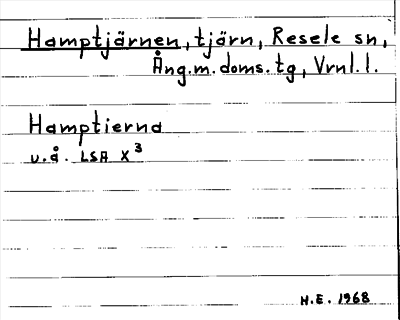 Hamptjärnen, tjärn, Resele sn,
Ång.m. doms. tg, Vrnl. l.
Hamptierna
u.å. LSA X³
H.E. 1968